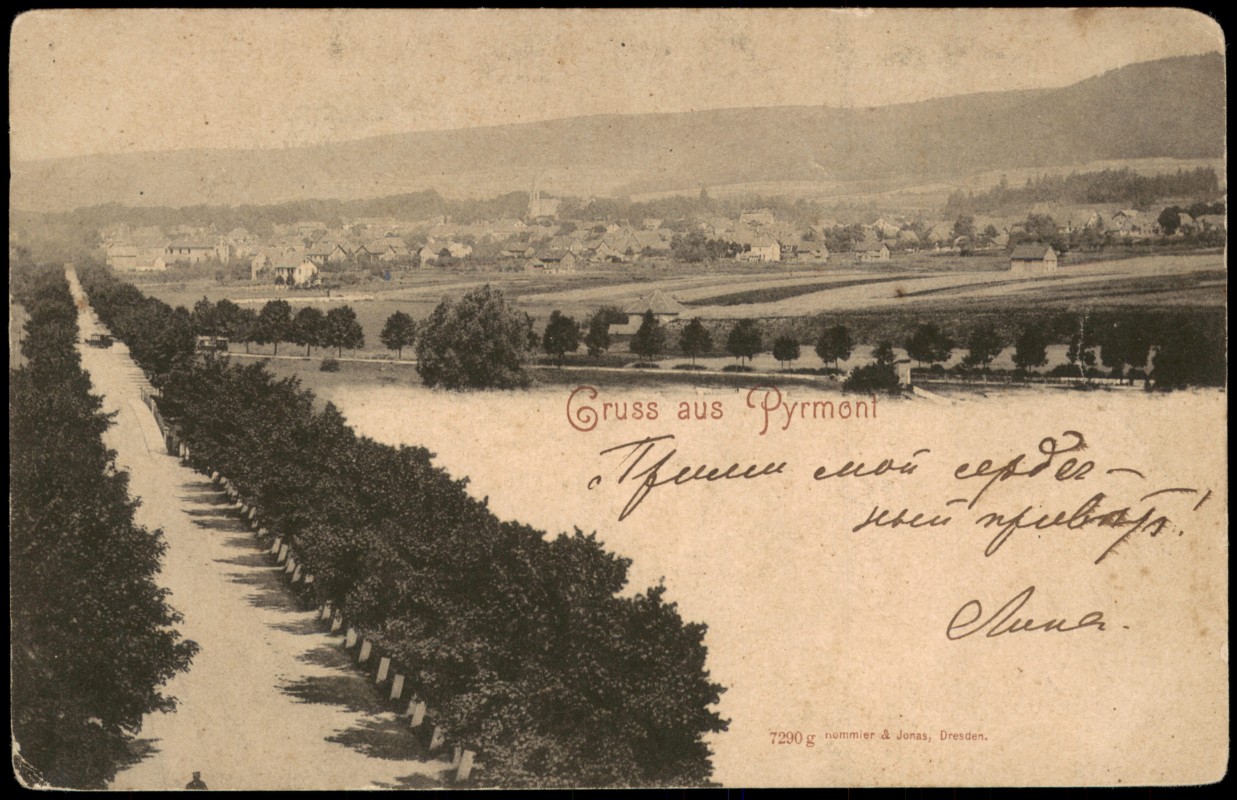 Gruss aus Pyrmont
Прими мой сердеч-
ный привѣтъ!
Лина.
7290 g Rommler & Jonas, Dresden.